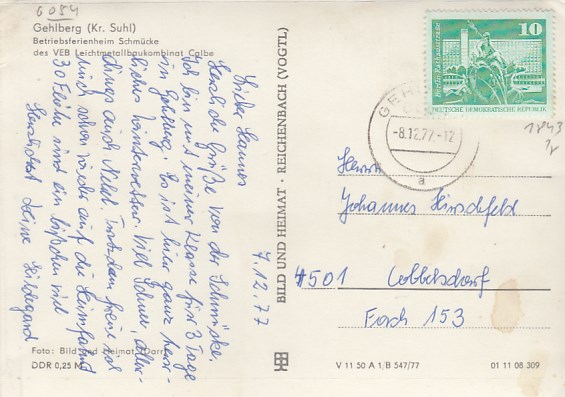 6084
Gehlberg (Kr. Suhl)
Betriebsferienheim Schmücke
des VEB Leichtmetallbaukombinat Calbe
Lieber Hannes
Herzliche Grüße von der Schmücke.
Ich bin mit meiner Klasse für 3 Tage
in Gehlberg. Es ist hier ganz herr-
liches Winterwetter. Viel Schnee, aller-
dings auch Nebel. Trotzdem freu ich
mich schon wieder auf die Heimfahrt
30 Leute sind ein bißchen viel
Herzlichst Deine Hildegard
7.12.77
Foto: Bild und Heimat
DDR 0,25 M
BILD UND HEIMAT · REICHENBACH (VOGTL)
10
Berlin, Rathausstraße
DEUTSCHE DEMOKRATISCHE REPUBLIK
GEH
-8.12.77-12
a
1843
Herrn
Johannes Hirschfeld
4501 Cobbelsdorf
Forch 153
V 11 50 A 1/B 547/77
01 11 08 309